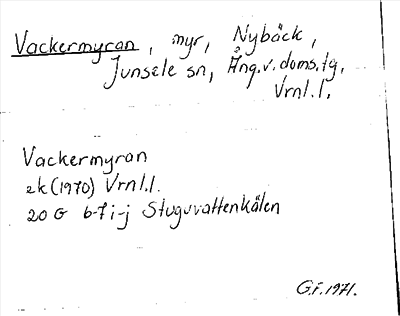 Vackermyran, myr, Nybäck,
Junsele sn, Ång.v.doms.tg,
Vrnl.l.
Vackermyran
ek(1970) Vrnl.l.
20 G 6-7 i-j Stuguvattenkälen
G.F.1971.